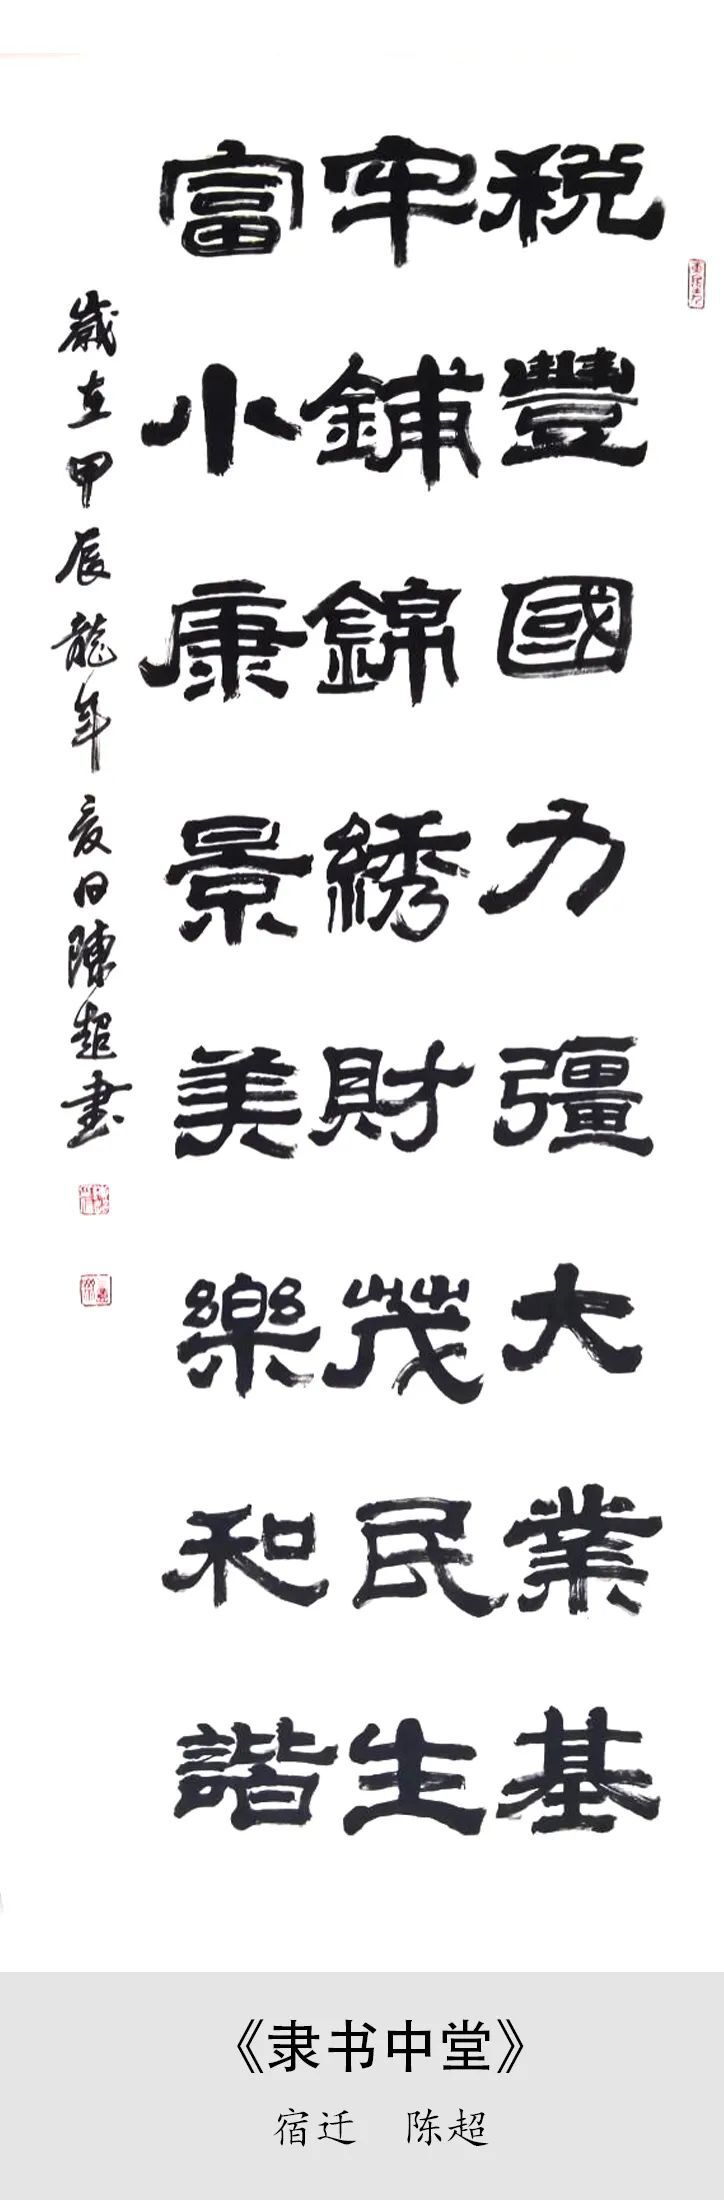 税豐國力彊大業基
牢鋪錦綉財茂民生
富小康景美樂和諧
歲在甲辰龍年夏日陳超書
《隶书中堂》
宿迁 陈超